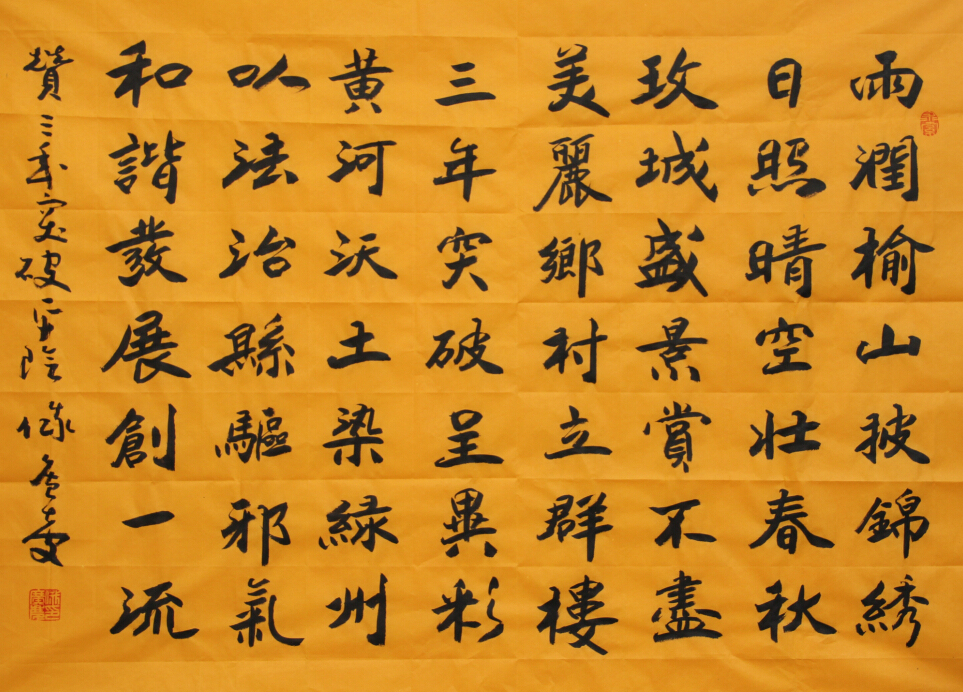 雨潤榆山披錦綉
日照晴空壯春秋
玫城盛景賞不盡
美麗鄉村立群樓
三年突破呈異彩
黃河沃土染綠州
以法治縣驅邪氣
和諧發展創一流
贊三年突破平陰